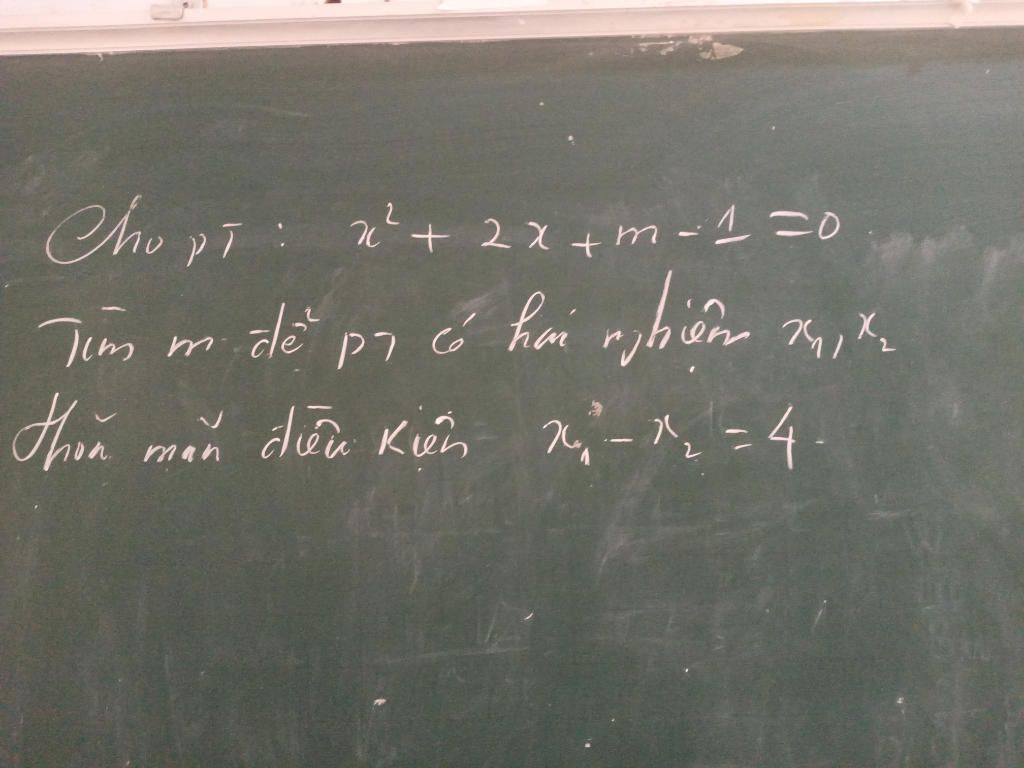 Cho pT : x² + 2x + m - 1 = 0
Tìm m để pT có hai nghiệm x₁, x₂
thoả mãn điều kiện x₁ - x₂ = 4.